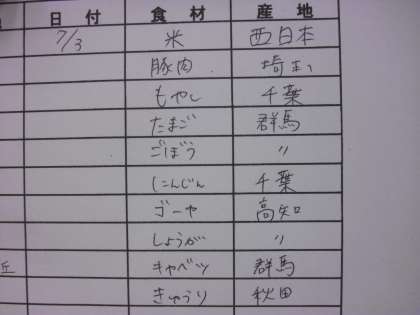 日付 食材 産地
7/3 米 西日本
豚肉 埼玉
もやし 千葉
たまご 群馬
ごぼう 〃
にんじん 千葉
ゴーヤ 高知
しょうが 〃
キャベツ 群馬
きゅうり 秋田